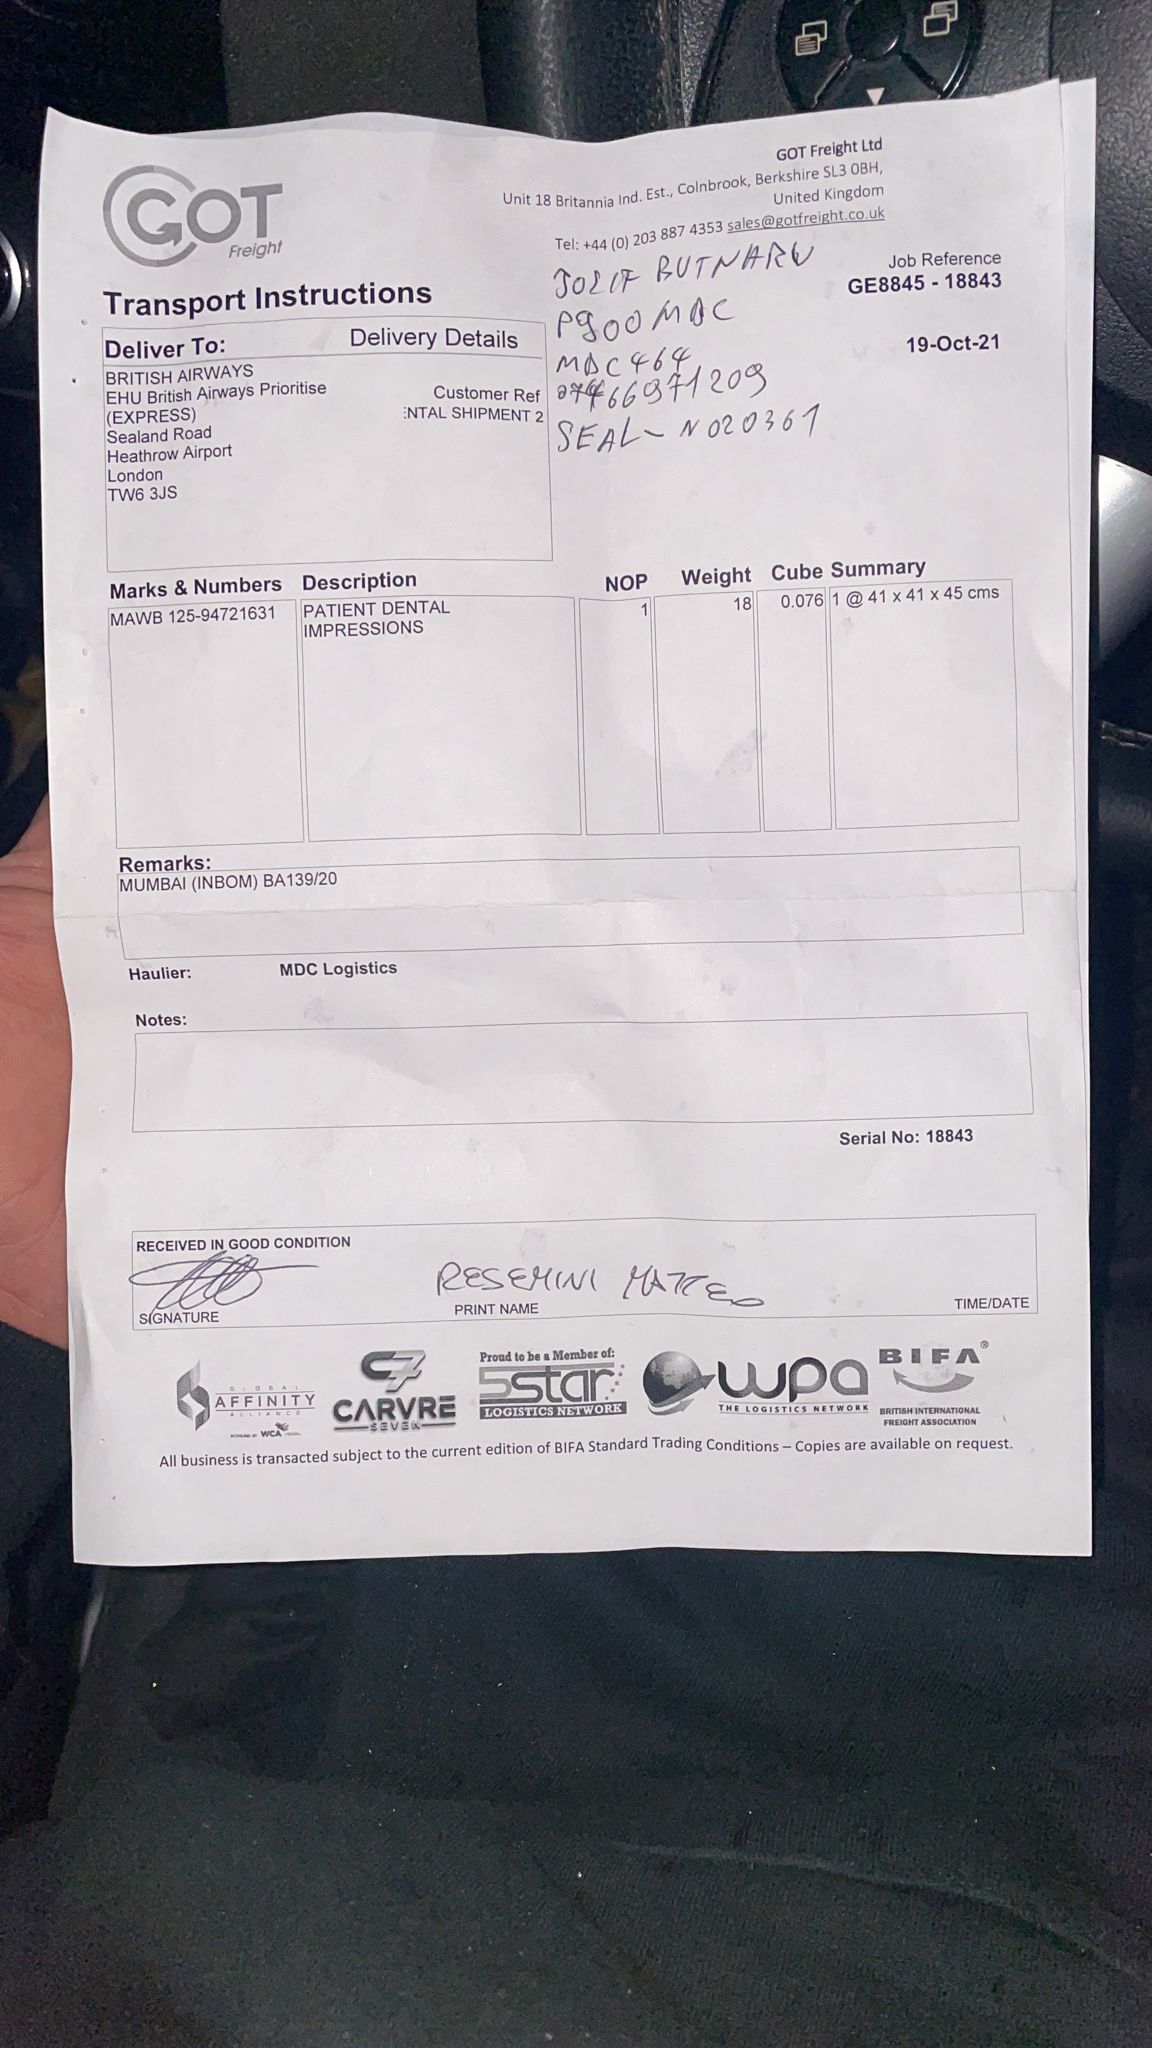 GOT
Freight
GOT Freight Ltd
Unit 18 Britannia Ind. Est., Colnbrook, Berkshire SL3 0BH,
United Kingdom
Tel: +44 (0) 203 887 4353 sales@gotfreight.co.uk
Transport Instructions
BUTNARU
P900MDC
MDC464
07466971209
SEAL - N020361
Job Reference
GE8845 - 18843
19-Oct-21
Deliver To: Delivery Details
BRITISH AIRWAYS
EHU British Airways Prioritise
(EXPRESS)
Sealand Road
Heathrow Airport
London
TW6 3JS
Customer Ref
ENTAL SHIPMENT 2
Marks & Numbers Description NOP Weight Cube Summary
MAWB 125-94721631 PATIENT DENTAL 1 18 0.076 1 @ 41 x 41 x 45 cms
IMPRESSIONS
Remarks:
MUMBAI (INBOM) BA139/20
Haulier: MDC Logistics
Notes:
Serial No: 18843
RECEIVED IN GOOD CONDITION
RESEMINI MATTEO
SIGNATURE PRINT NAME TIME/DATE
GLOBAL
AFFINITY
ALLIANCE
POWERED BY WCA
C7
CARVRE
SEVEN
Proud to be a Member of:
5star
LOGISTICS NETWORK
wpa
THE LOGISTICS NETWORK
BIFA®
BRITISH INTERNATIONAL
FREIGHT ASSOCIATION
All business is transacted subject to the current edition of BIFA Standard Trading Conditions – Copies are available on request.